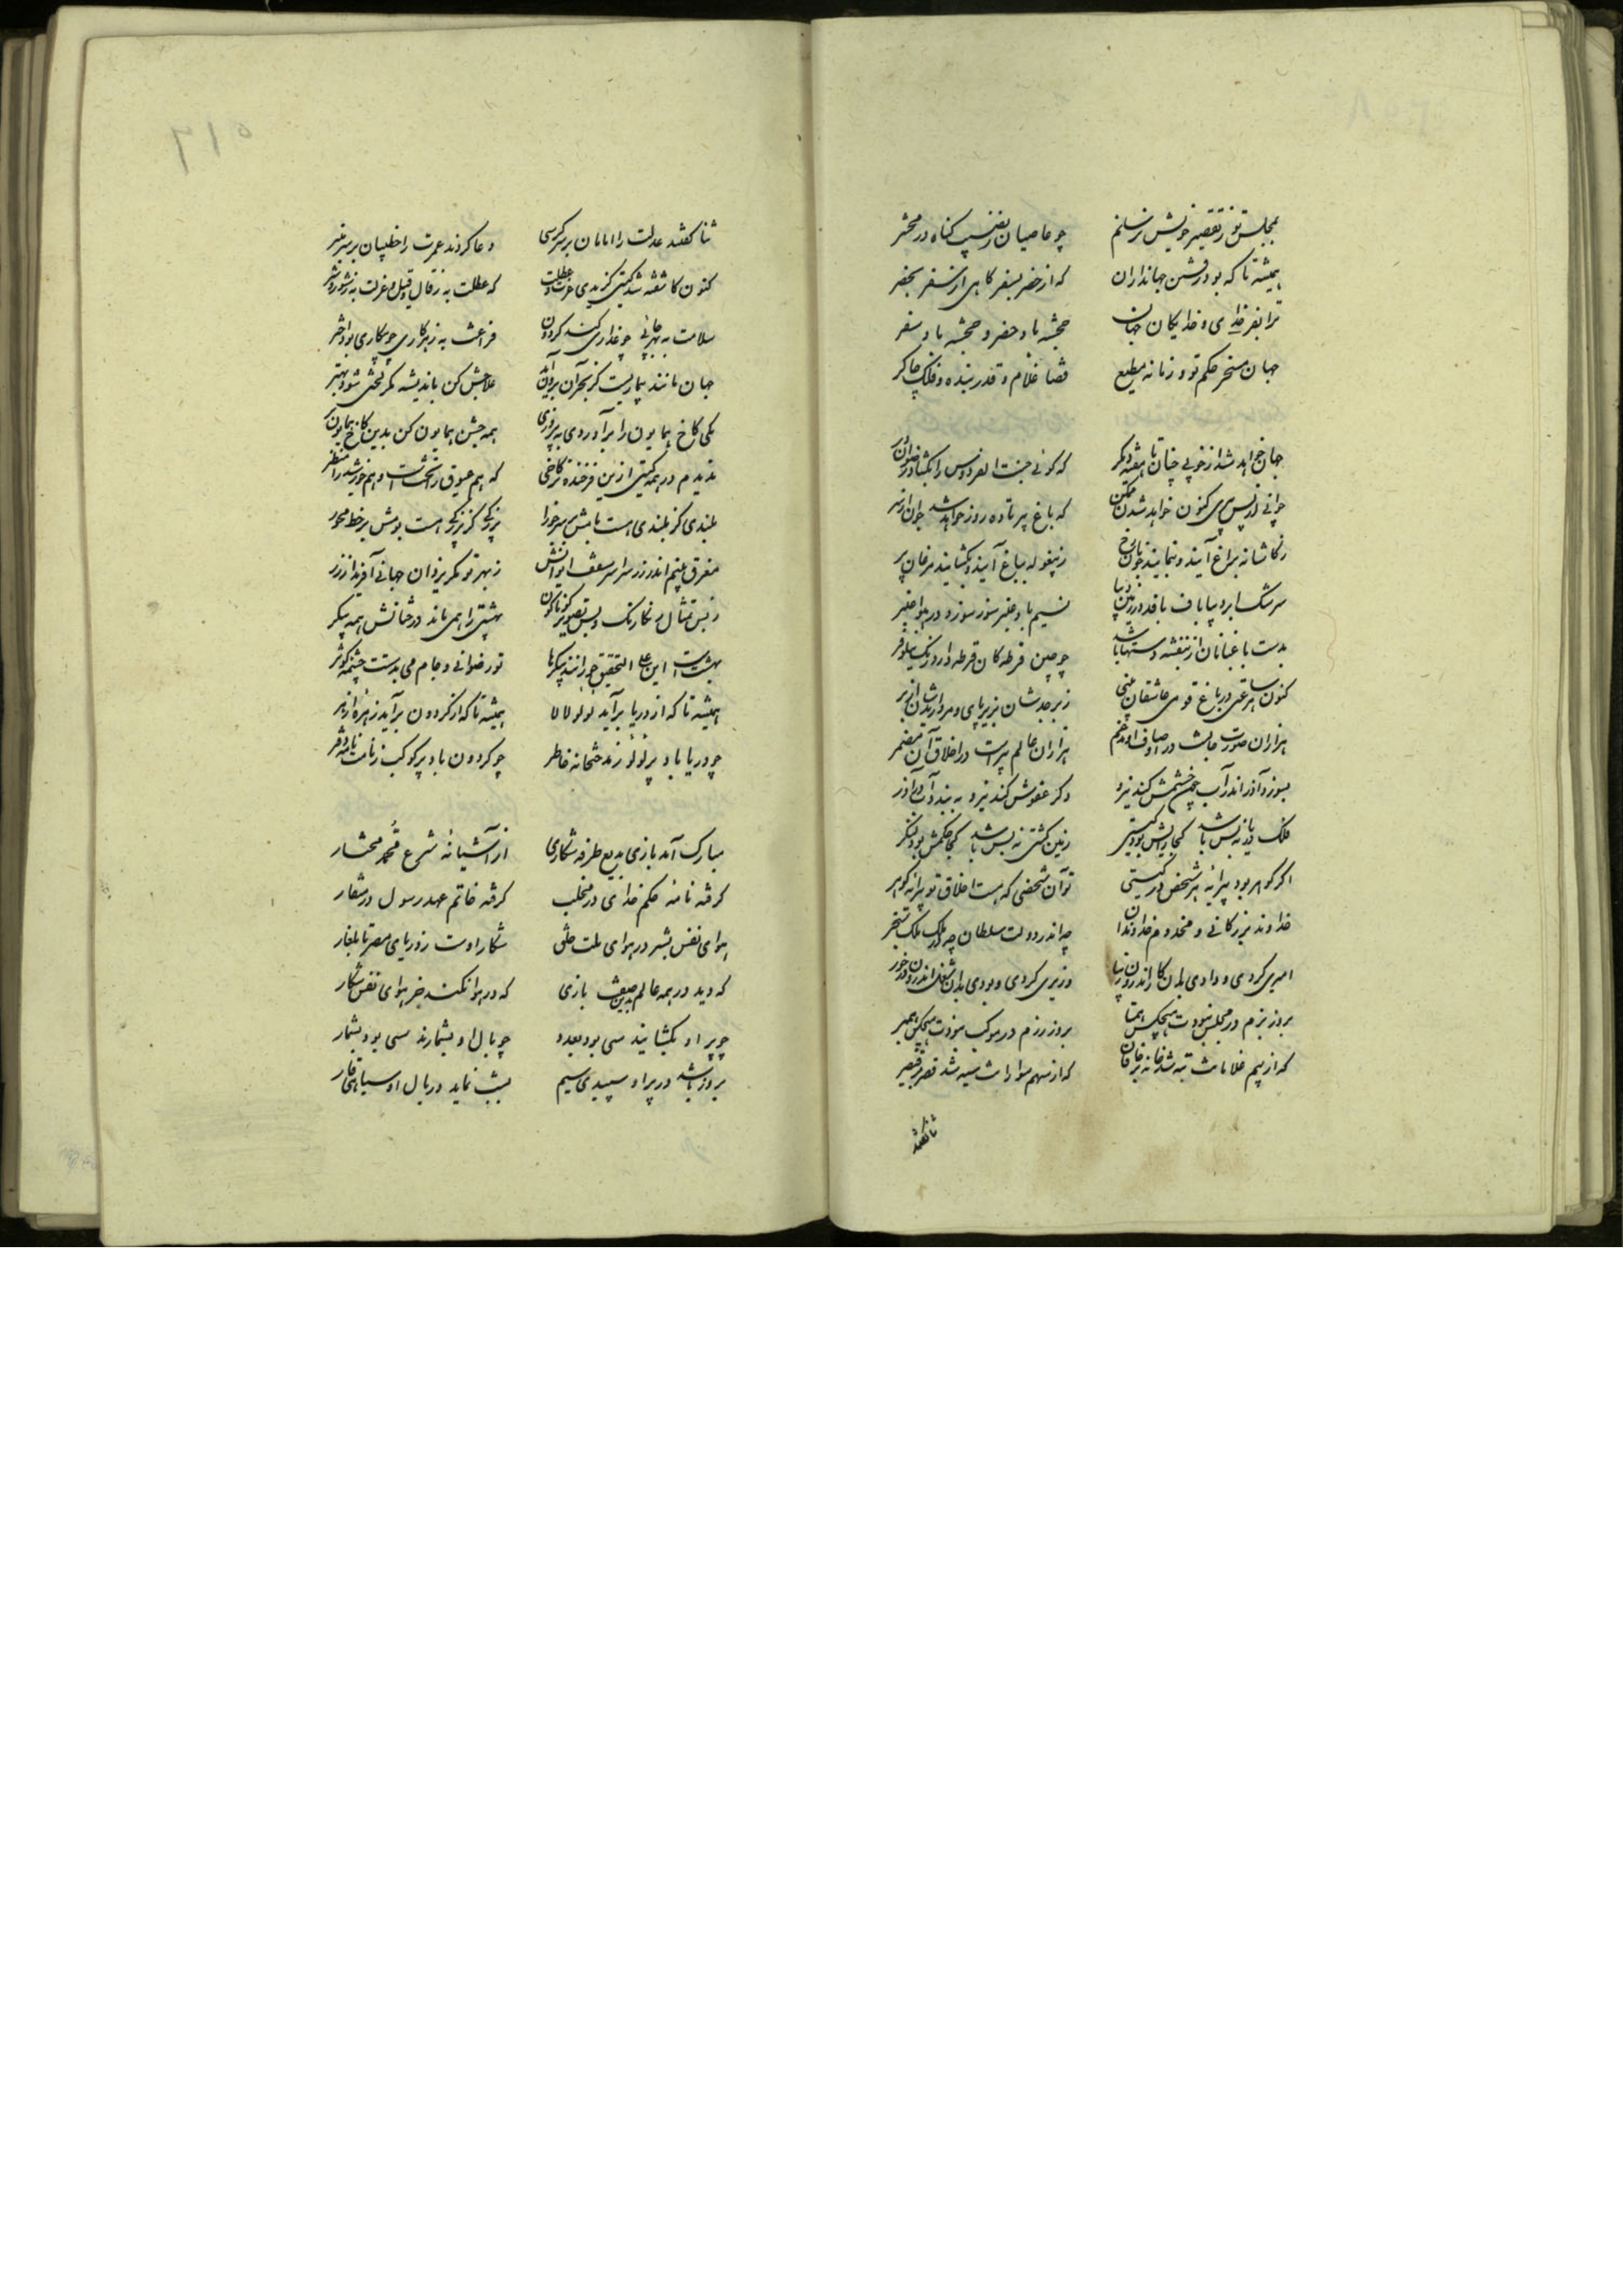 بمجلس تو ز تقصیر خویش ترسانم چو عاصیان ز نهیب گناه در محشر
همیشه تا که بود رفتن جهانداران که از حضر بسفر گاهی از سفر بحضر
ترا بفر خدای و خدایگان جهان خجسته باد حضر و خجسته باد سفر
جهان مسخر حکم تو و زمانه مطیع قضا غلام و قدر بنده و فلک چاکر
جهان خواهد شد از خوبی چنان تا هفته دیگر که گوئی جنت الفردوس را بگشاد رضوان در
جوانی از پس پیری کنون خواهد شدن ممکن که باغ پیر تا ده روز خواهد شد جوان از سر
ز کاشانه بباغ آیند و بنمایند خوبان رخ ز پیغوله بباغ آیند و بگشایند مرغان پر
سرشک ابر دیبا باف بافد در زمین دیبا نسیم باد عنبر سوز سوزد در هوا عنبر
بدست باغبانان از بنفشه دستها باشد چو چین قرطه کان قرطه دارد رنگ نیلوفر
کنون هر ساعتی در باغ قومی عاشقان بینی زبرجدشان بزیر پای و مرواریدشان از بر
هزاران صورت خابست در اوصاف او مدغم هزاران عالم پیر است در اخلاق آن مضمر
بسوزد آذر اندر آب چون خشمش کند نیرو وگر عفوش کند نیرو ببندد آب در آذر
فلک دریا نه بس باشد کجا رایش بود کشتی زمین کشتی نه بس باشد کجا حکمش بود لنگر
اگر گوهر بود پیرایه هر شخص در گیتی تو آن شخصی که هست اخلاق تو پیرایه گوهر
خداوند بزرگانی و مخدوم خداوندان چه اندر دولت سلطان چه اندر ملک سنجر
امیری کردی و دادی بدان کار اندرون زیبا وزیری کردی و بودی بدان شغل اندرون در خور
بروز بزم در مجلس نبودت هیچکس همتا بروز رزم در موکب نبودت هیچکس همبر
که از بیم غلامانت تبه شد خانه بر خاقان که از سهم سوارانت سیه شد قصر بر قیصر
ثنا گفتند
ثنا گفتند عدلت را امامان بر سر کرسی دعا کردند عمرت را خطیبان بر سر منبر
کنون کاشفته شد گیتی گزیدی عزلت و عطلت که عطلت به ز قال و قیل و عزلت به ز شور و شر
سلامت به بهر جائی چو غداری کند گردون فراغت به ز هر کاری چو مکاری بود اختر
جهان مانند بیماریست کز بحران بود علاجش کن باندیشه مگر لختی شود بهتر
یکی کاخ همایون را برآوردی به پیروزی همه جشن همایون کن بدین کاخ همایون در
ندیدم در همه گیتی ازین فرخنده تر کاخی که هم عیوق را تختست و هم خورشید را منظر
بلندی کز بلندی هست بامش بر سر جوزا
مغرق بینم اندر زر سراسر سقف ایوانش ز بهر تو مگر یزدان جهانی آفرید از زر
ز بس تمثال رنگارنگ و بس تصویر گوناگون بهشتی را همی ماند درختانش همه پیکر
بهشتست این علی التحقیق حورانند پیکرها تو رضوانی و جام می بدستت چشمه کوثر
همیشه تا که از دریا برآید لولو لالا همیشه تا که از گردون برآید زهره ازهر
چو دریا باد پر لؤلؤ ز مدحت خانه خاطر چو گردون باد پر کوکب ز نامت نامه و دفتر
مبارک آمد بازی بدیع طرفه شکاری از آشیانهٔ شرع محمد مختار
گرفته نامهٔ حکم خدای در مخلب گرفته خاتم عهد رسول در منقار
هوای نفس بشر در هوای ملت حق شکار اوست ز دریای مصر تا بلغار
که دید در همه عالم بدین صفت بازی که در هوا نکند جز هوای نفس شکار
چو پر او بگشایند سی بود بعدد چو بال او بشمارند سی بود بشمار
بروز باشد در پر او سپیدی سیم بشب نماید در بال او سیاهی قار